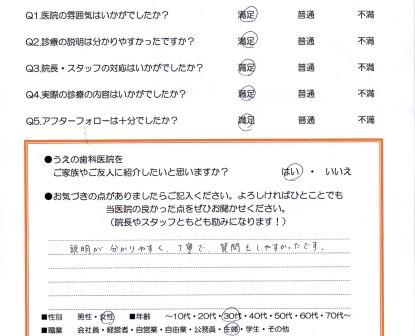 Q1.医院の雰囲気はいかがでしたか？ 満足 普通 不満
Q2.診療の説明は分かりやすかったですか？ 満足 普通 不満
Q3.院長・スタッフの対応はいかがでしたか？ 満足 普通 不満
Q4.実際の診療の内容はいかがでしたか？ 満足 普通 不満
Q5.アフターフォローは十分でしたか？ 満足 普通 不満
●うえの歯科医院を
ご家族やご友人に紹介したいと思いますか？ はい ・ いいえ
●お気づきの点がありましたらご記入ください。よろしければひとことでも
当医院の良かった点をぜひお聞かせください。
（院長やスタッフともども励みになります！）
説明が分かりやすく、丁寧で、質問もしやすかったです。
■性別 男性・女性 ■年齢 〜10代・20代・30代・40代・50代・60代・70代〜
■職業 会社員・経営者・自営業・自由業・公務員・主婦・学生・その他